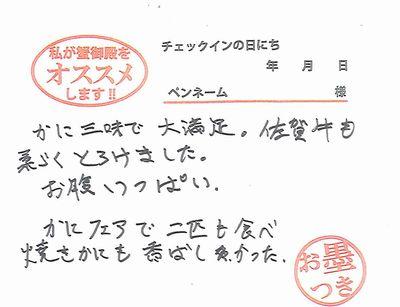 私が蟹御殿を
オススメ
します!!
チェックインの日にち
年 月 日
ペンネーム 様
かに三味で大満足。佐賀牛も
柔らくとろけました。
お腹いっぱい。
かにフェアで二匹も食べ
焼きかにも香ばし良かった。
お墨
つき